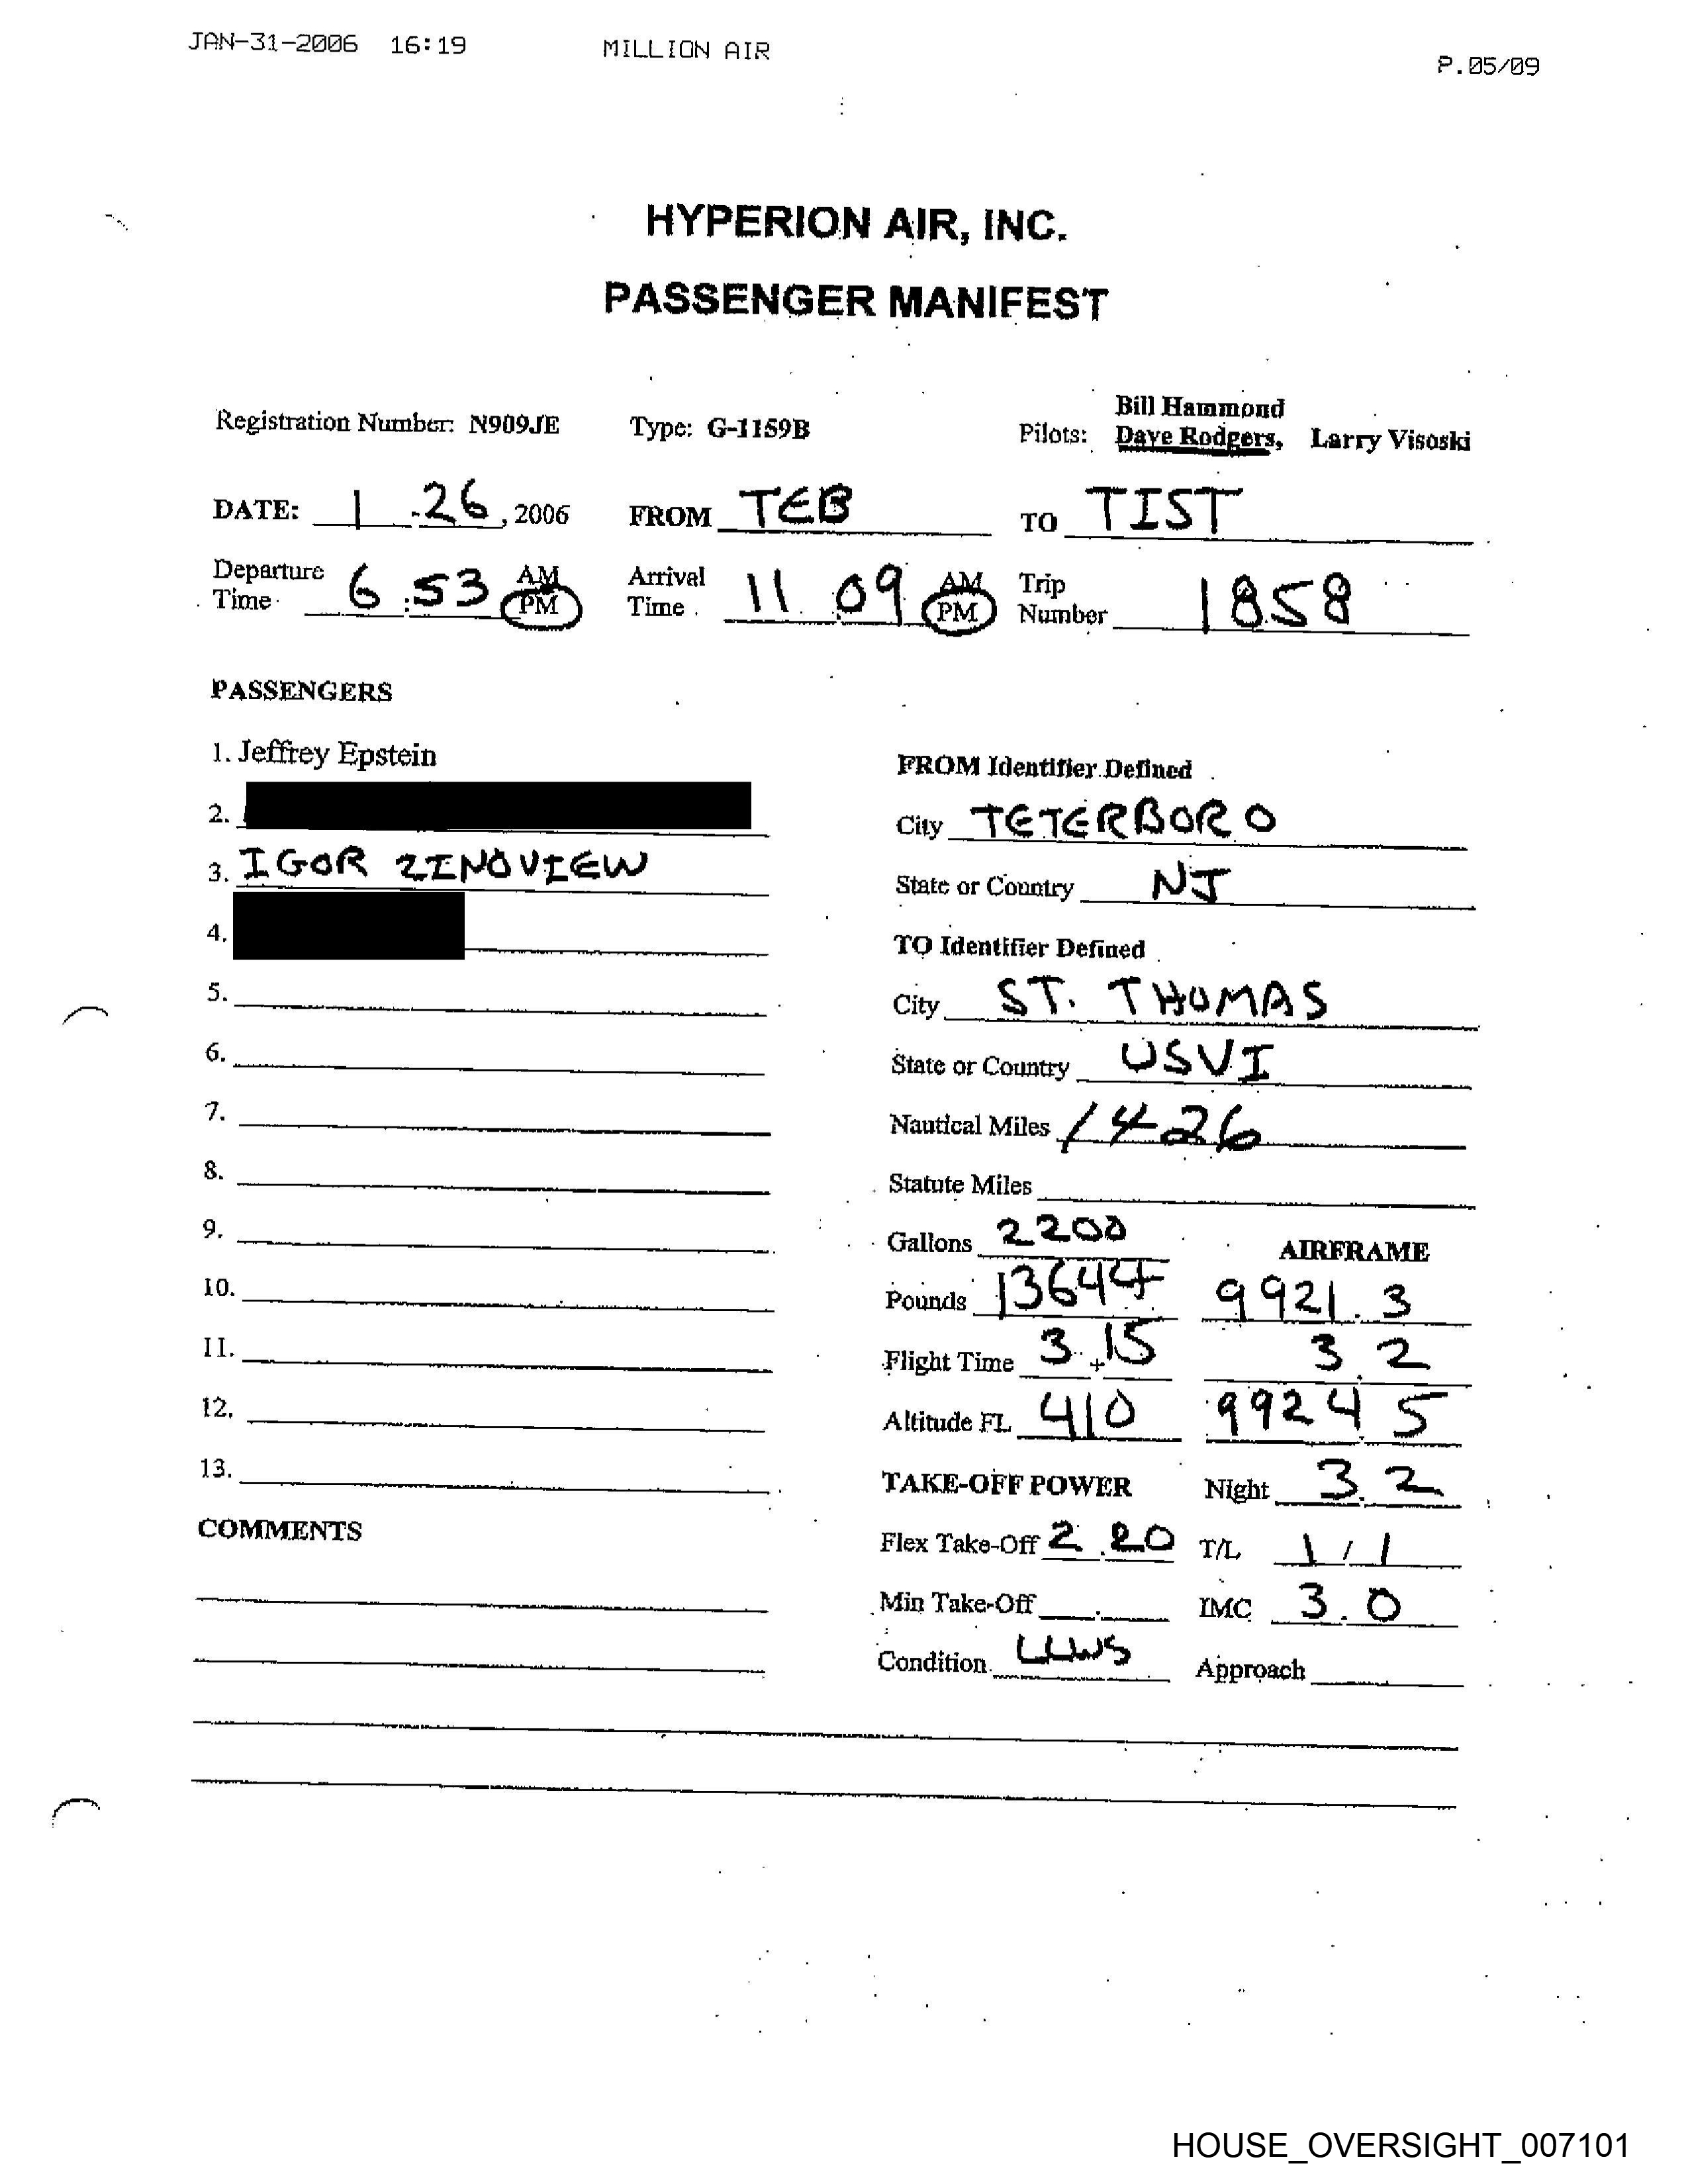 JAN-31-2006 16:19 MILLION AIR P.05/09
HYPERION AIR, INC.
PASSENGER MANIFEST
Bill Hammond
Registration Number: N909JE Type: G-1159B Pilots: Dave Rodgers, Larry Visoski
DATE: 1 . 26 , 2006 FROM TEB TO TIST
Departure Time 6 : 53 AM PM Arrival Time 11 : 09 AM PM Trip Number 1858
PASSENGERS
1. Jeffrey Epstein
FROM Identifier Defined
2.
City TETERBORO
3. IGOR ZINOVIEW
State or Country NJ
4.
TO Identifier Defined
5.
City ST. THOMAS
6.
State or Country USVI
7.
Nautical Miles 1426
8.
Statute Miles
9.
Gallons 2200 AIRFRAME
10.
Pounds 13644 9921.3
11.
Flight Time 3 + 15 3.2
12.
Altitude FL 410 9924.5
13.
TAKE-OFF POWER Night 3.2
COMMENTS
Flex Take-Off 2.20 T/L 1 / 1
Min Take-Off . IMC 3.0
Condition LLWS Approach
HOUSE_OVERSIGHT_007101